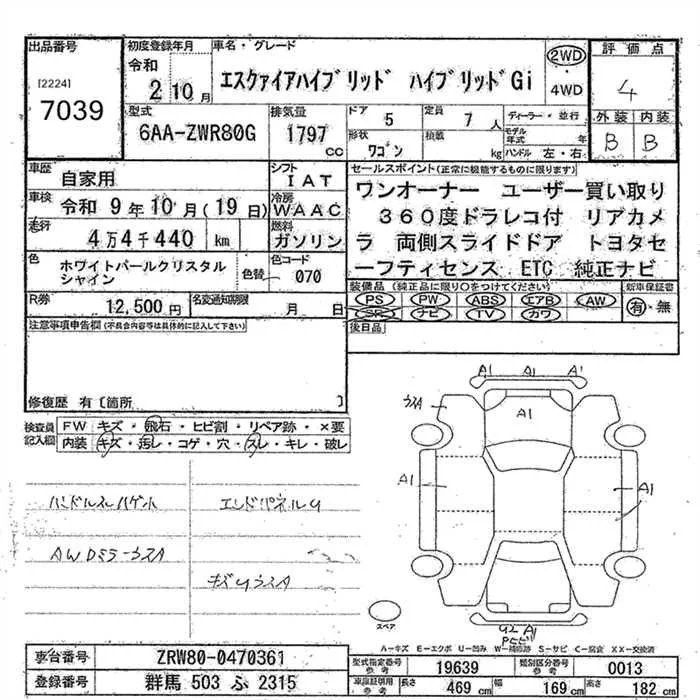 出品番号
[2224]
7039
初度登録年月
令和
2年10月
車名・グレード
エスクァイアハイブリッド ハイブリッドGi
2WD
・
4WD
評価点
4
外装 内装
B B
型式
6AA-ZWR80G
排気量
1797
cc
ドア 5
定員 7 人
形状 ワゴン
積載 kg
ディーラー・並行
モデル年式 年
ハンドル 左・右
車歴 自家用
シフト IAT
車検 令和 9年10月(19日)
冷房 WAAC
走行 4万4千440 km
燃料 ガソリン
色 ホワイトパールクリスタルシャイン
色替
色コード 070
R券 12,500円
名変通知期限 月 日
セールスポイント(正常に機能するものに限ります)
ワンオーナー ユーザー買い取り
360度ドラレコ付 リアカメ
ラ 両側スライドドア トヨタセ
ーフティセンス ETC 純正ナビ
装備品(純正品に限り○をつけてください)
PS PW ABS エアB AW
SR ナビ TV カワ
新車保証書
有・無
後日品
注意事項申告欄(不具合内容等は具体的に記入して下さい)
修復歴 有〔箇所 〕
検査員記入欄
FW キズ・飛石・ヒビ割・リペア跡・×要
内装 キズ・汚レ・コゲ・穴・スレ・キレ・破レ
ハンドルスレハゲ
エンドパネルU
AW
キズUウスA
A1 A1 A'
ウスA
A1
A1
A1
A1
U2 A1
スペア
A=キズ E=エクボ U=凹み W=補修跡 S=サビ C=腐食 XX=交換済
車台番号 ZRW80-0470361
登録番号 群馬 503 ふ 2315
型式指定番号 参考 19639
類別区分番号 参考 0013
車庫証明用 参考 長さ 469 cm 幅 169 cm 高さ 182 cm